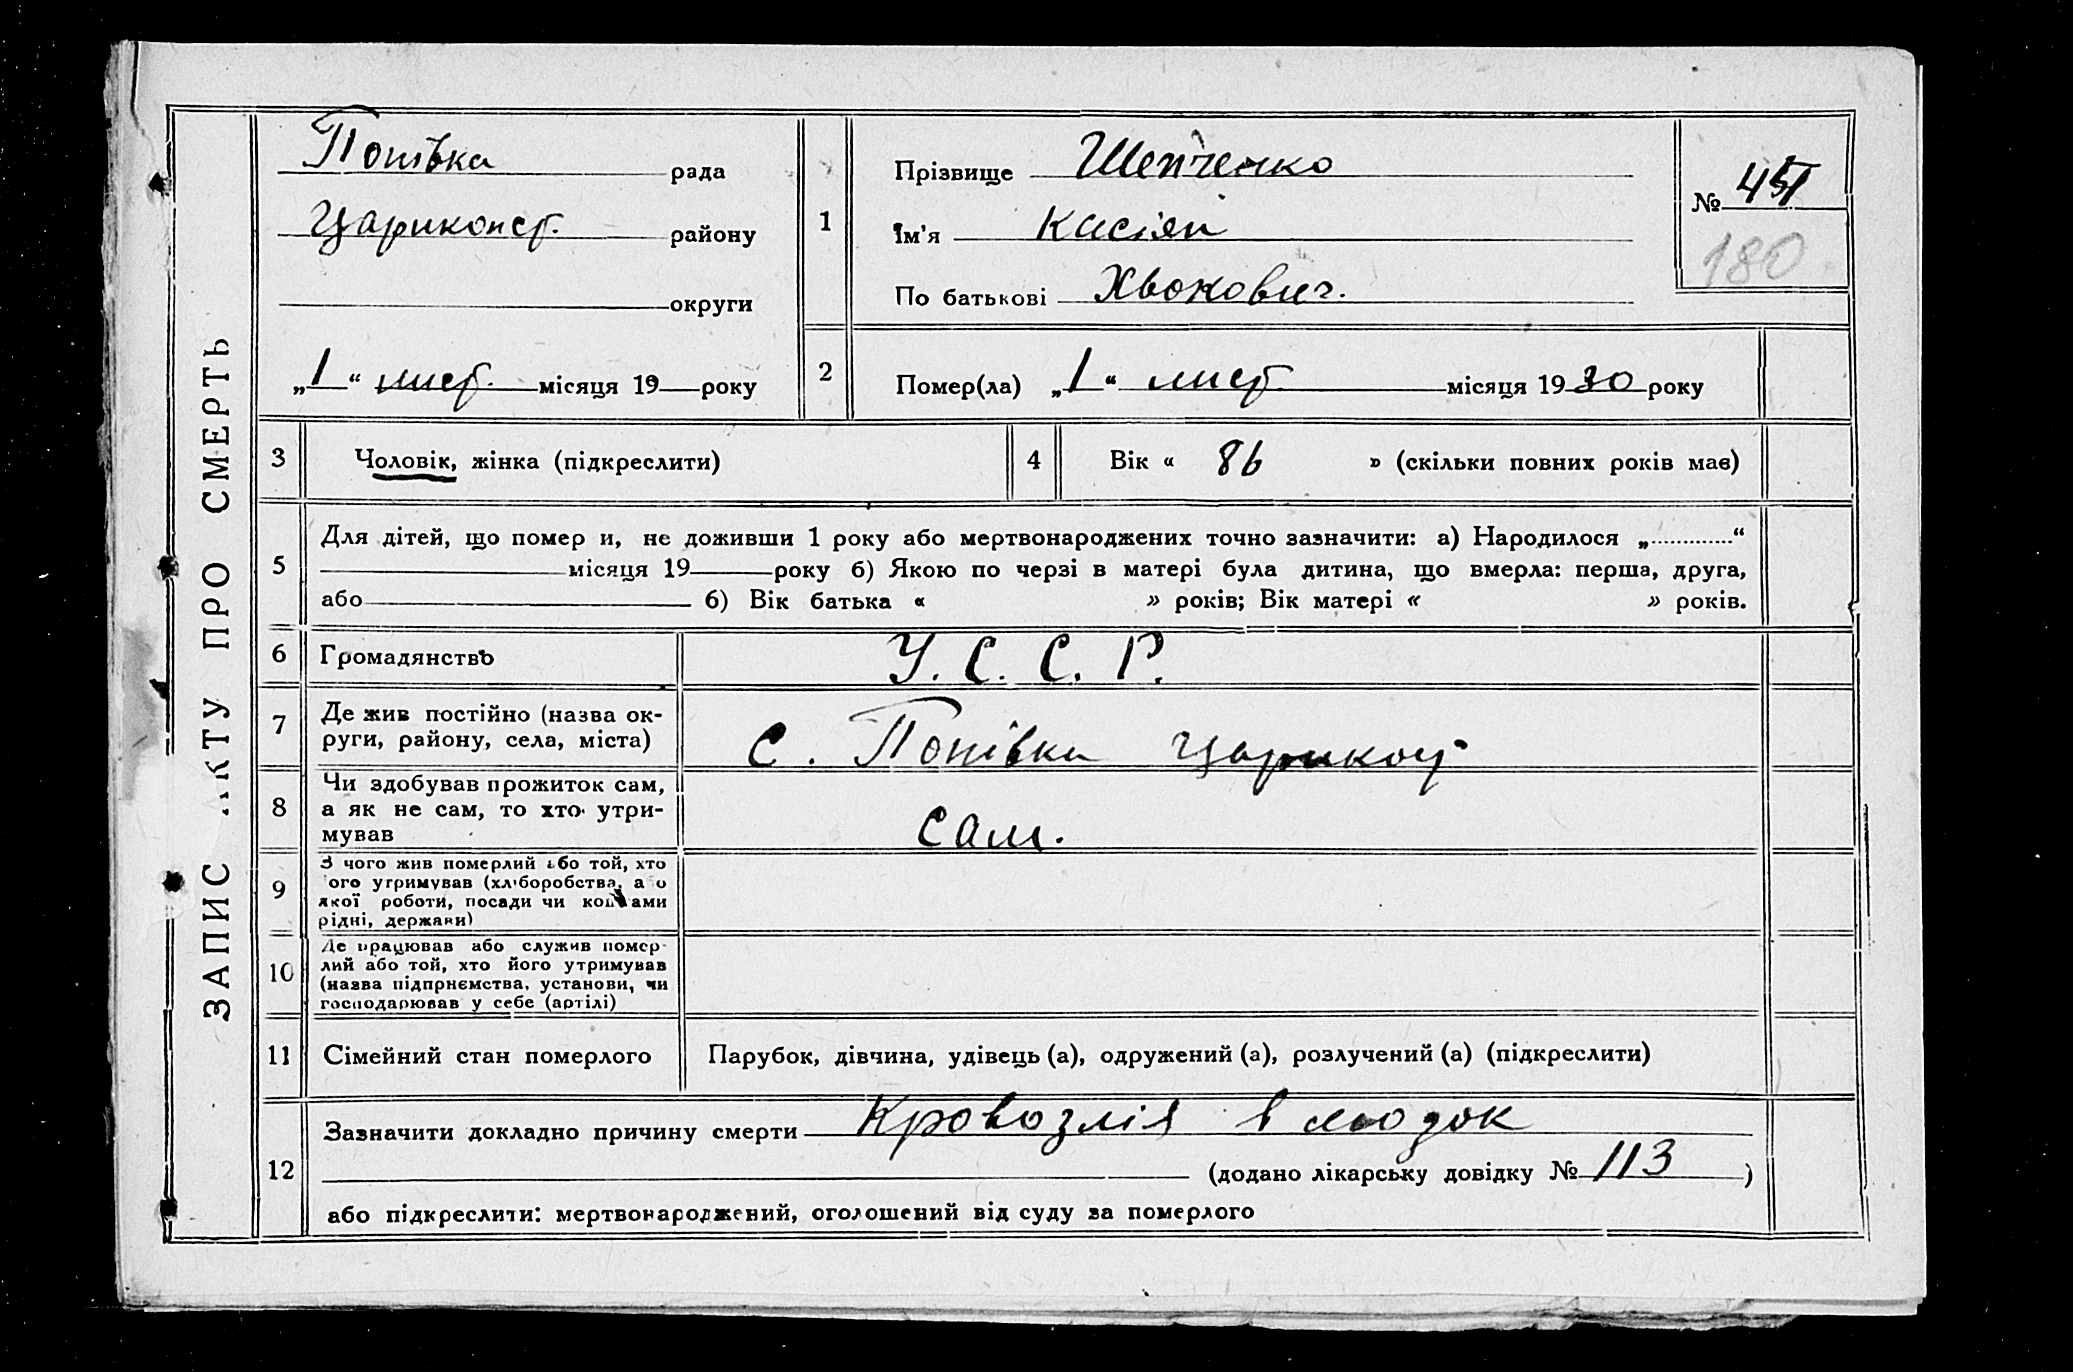 ЗАПИС АКТУ ПРО СМЕРТЬ
Попівка рада
Цариконст. району
округи
„1“ лист. місяця 19 року
1
Прізвище Шепченко
Ім'я Касіян
По батькові Хьокович.
№ 451
180
2
Помер(ла) „1“ лист. місяця 1930 року
3 Чоловік, жінка (підкреслити)
4 Вік « 86 » (скільки повних років має)
5
Для дітей, що помер и, не доживши 1 року або мертвонароджених точно зазначити: а) Народилося „ “
місяця 19 року б) Якою по черзі в матері була дитина, що вмерла: перша, друга,
або б) Вік батька « » років; Вік матері « » років.
6 Громадянство У. С. С. Р.
7 Де жив постійно (назва ок-
руги, району, села, міста) с. Попівка Царикост
8 Чи здобував прожиток сам,
а як не сам, то хто утри-
мував сам.
9 З чого жив померлий або той, хто
ого утримував (хліборобства, або
якої роботи, посади чи коштами
рідні, держави)
10 Де працював або служив помер-
лий або той, хто його утримував
(назва підприємства, установи, чи
господарював у себе (артілі)
11 Сімейний стан померлого Парубок, дівчина, удівець (а), одружений (а), розлучений (а) (підкреслити)
12
Зазначити докладно причину смерти Кровозлія в
(додано лікарську довідку № 113 )
або підкреслити: мертвонароджений, оголошений від суду за померлого